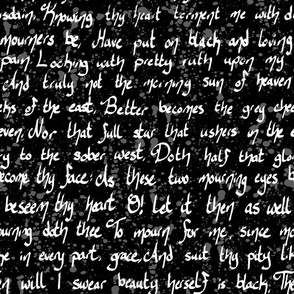 isdain, Knowing thy heart torment me with d
mourners be, Have put on black and loving
pain. Looking with pretty ruth upon my
And truly not the morning sun of heaven
eks of the east, Better becomes the grey chee
even, Nor that full star that ushers in the e
ry to the sober west, Doth half that glo
ecome thy face: As these two mourning eyes b
beseem thy heart O! Let it then as well
ourning doth thee To mourn for me, since mo
ke in every part, grace, And suit thy pity lik
en will I swear beauty herself is black, The